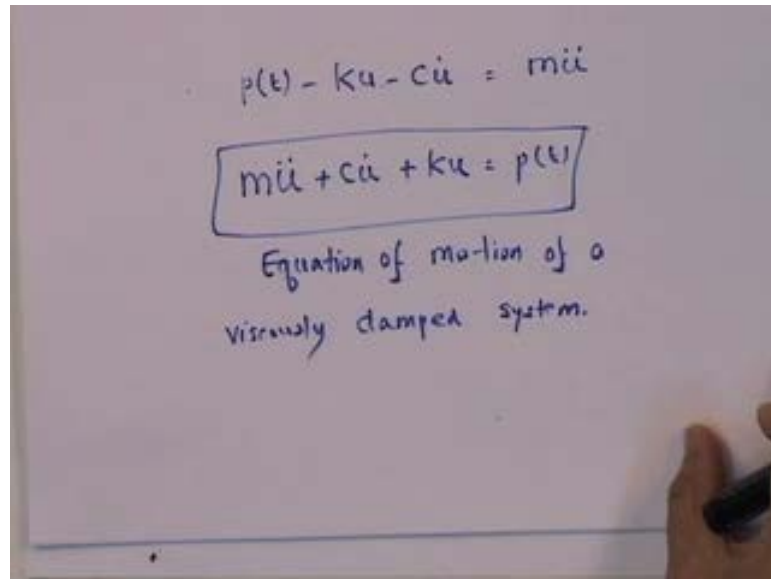 p(t) - ku - cu̇ = mü
mü + cu̇ + ku = p(t)
Equation of motion of a
viscously damped system.